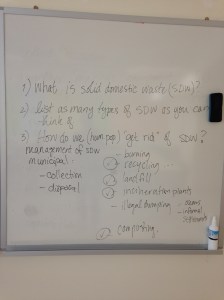 1) What is solid domestic waste (SDW)?
2) List as many types of SDW as you can think of
3) How do we (human pop) "get rid" of SDW?
management of SDW
municipal:
- collection
- disposal
- burning
- recycling
- landfill
- incineration plants
- illegal dumping
- slums
- informal settlement
- composting